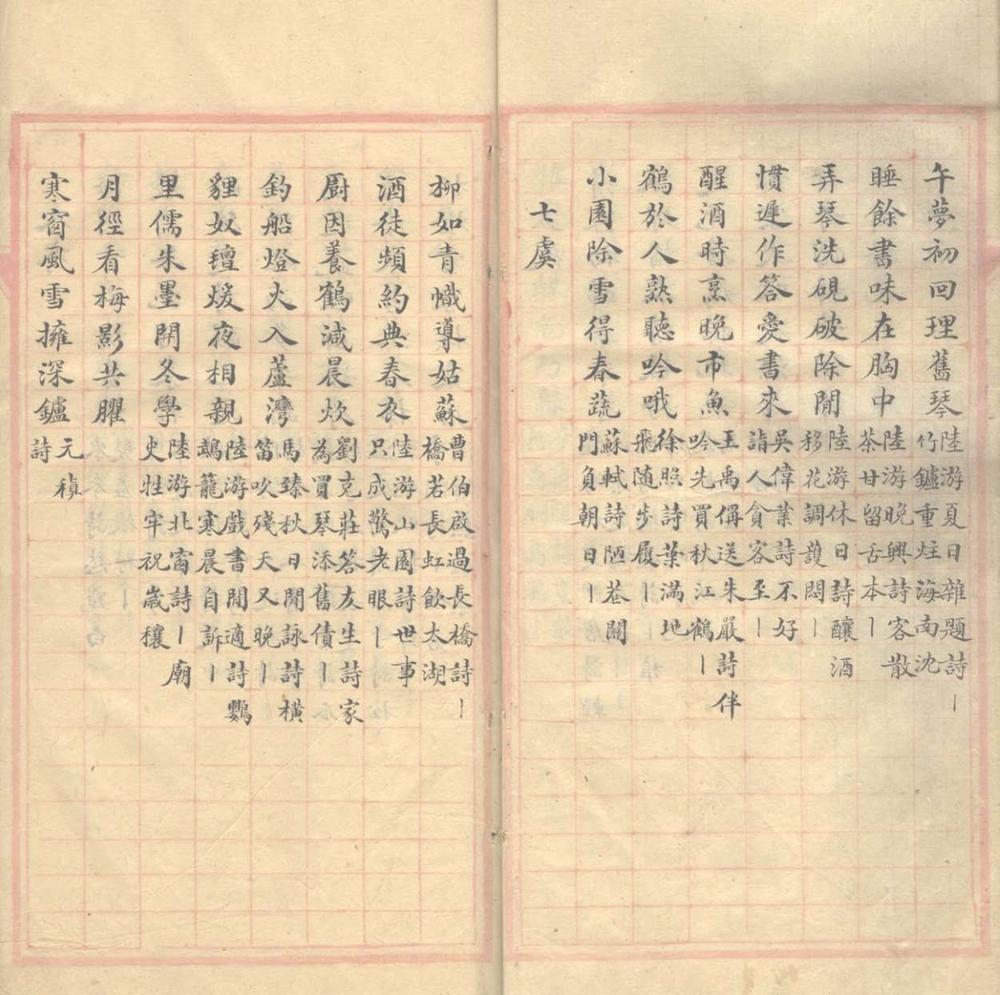 午夢初回理舊琴 陸游夏日雜題詩丨
竹鑪重炷海南沈
睡餘書味在胸中 陸游晚興詩客散
茶甘留舌本丨
弄琴洗硯破除閒 陸游休日詩釀酒
移花調護悶丨
慣遲作答愛書來 吳偉業詩不好
詣人貪客至丨
醒酒時烹晚市魚 王禹偁送朱嚴詩伴
吟先買秋江鶴丨
鶴於人熟聽吟哦 徐照詩葉滿地
飛随步屐丨
小園除雪得春蔬 蘇軾詩陋巷關
門負朝日丨
七虞
柳如青幟導姑蘇 曹伯啟過長橋詩丨
橋若長虹飲太湖
酒徒頻約典春衣 陸游山園詩世事
只成驚老眼丨
廚因養鶴減晨炊 劉克莊答友生詩家
為買琴添舊債丨
釣船燈火入蘆灣 馬臻秋日閒詠詩橫
笛吹殘天又晚丨
貍奴氊煖夜相親 陸游戲書閒適詩鸚
鵡籠寒晨自訴丨
里儒朱墨開冬學 陸游北窗詩丨廟
史牲牢祝歲穰
月徑看梅影共臞
寒窗風雪擁深鑪 元稹
詩